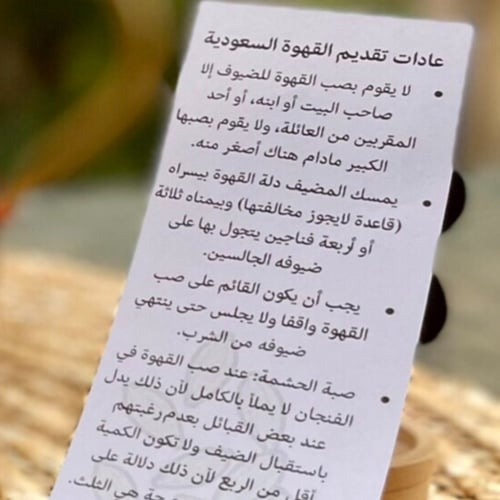 عادات تقديم القهوة السعودية
• لا يقوم بصب القهوة للضيوف إلا
صاحب البيت أو ابنه، أو أحد
المقربين من العائلة، ولا يقوم بصبها
الكبير مادام هناك أصغر منه.
• يمسك المضيف دلة القهوة بيسراه
(قاعدة لايجوز مخالفتها) وبيمناه ثلاثة
أو أربعة فناجين يتجول بها على
ضيوفه الجالسين.
• يجب أن يكون القائم على صب
القهوة واقفا ولا يجلس حتى ينتهي
ضيوفه من الشرب.
• صبة الحشمة: عند صب القهوة في
الفنجان لا يملأ بالكامل لأن ذلك يدل
عند بعض القبائل بعدم رغبتهم
باستقبال الضيف ولا تكون الكمية
أقل من الربع لأن ذلك دلالة على
هي الثلث.